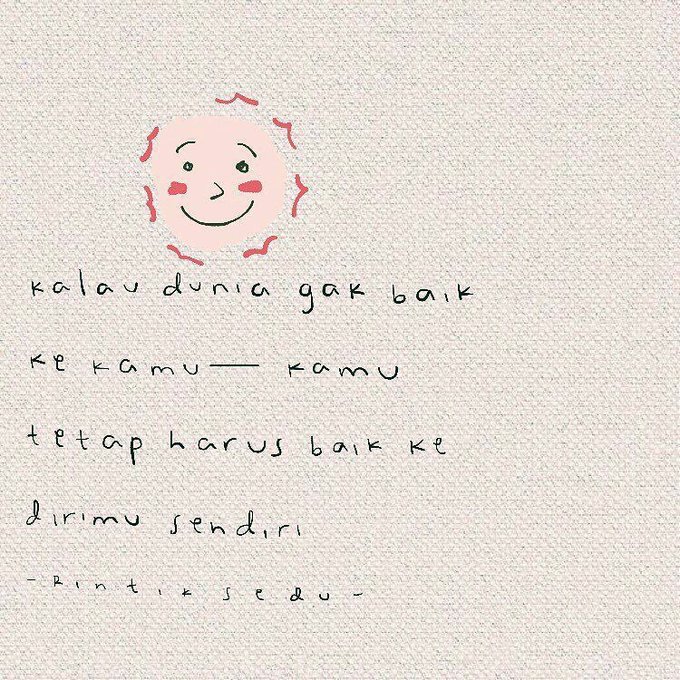 kalau dunia gak baik
ke kamu — kamu
tetap harus baik ke
dirimu sendiri
- Rintik sedu -